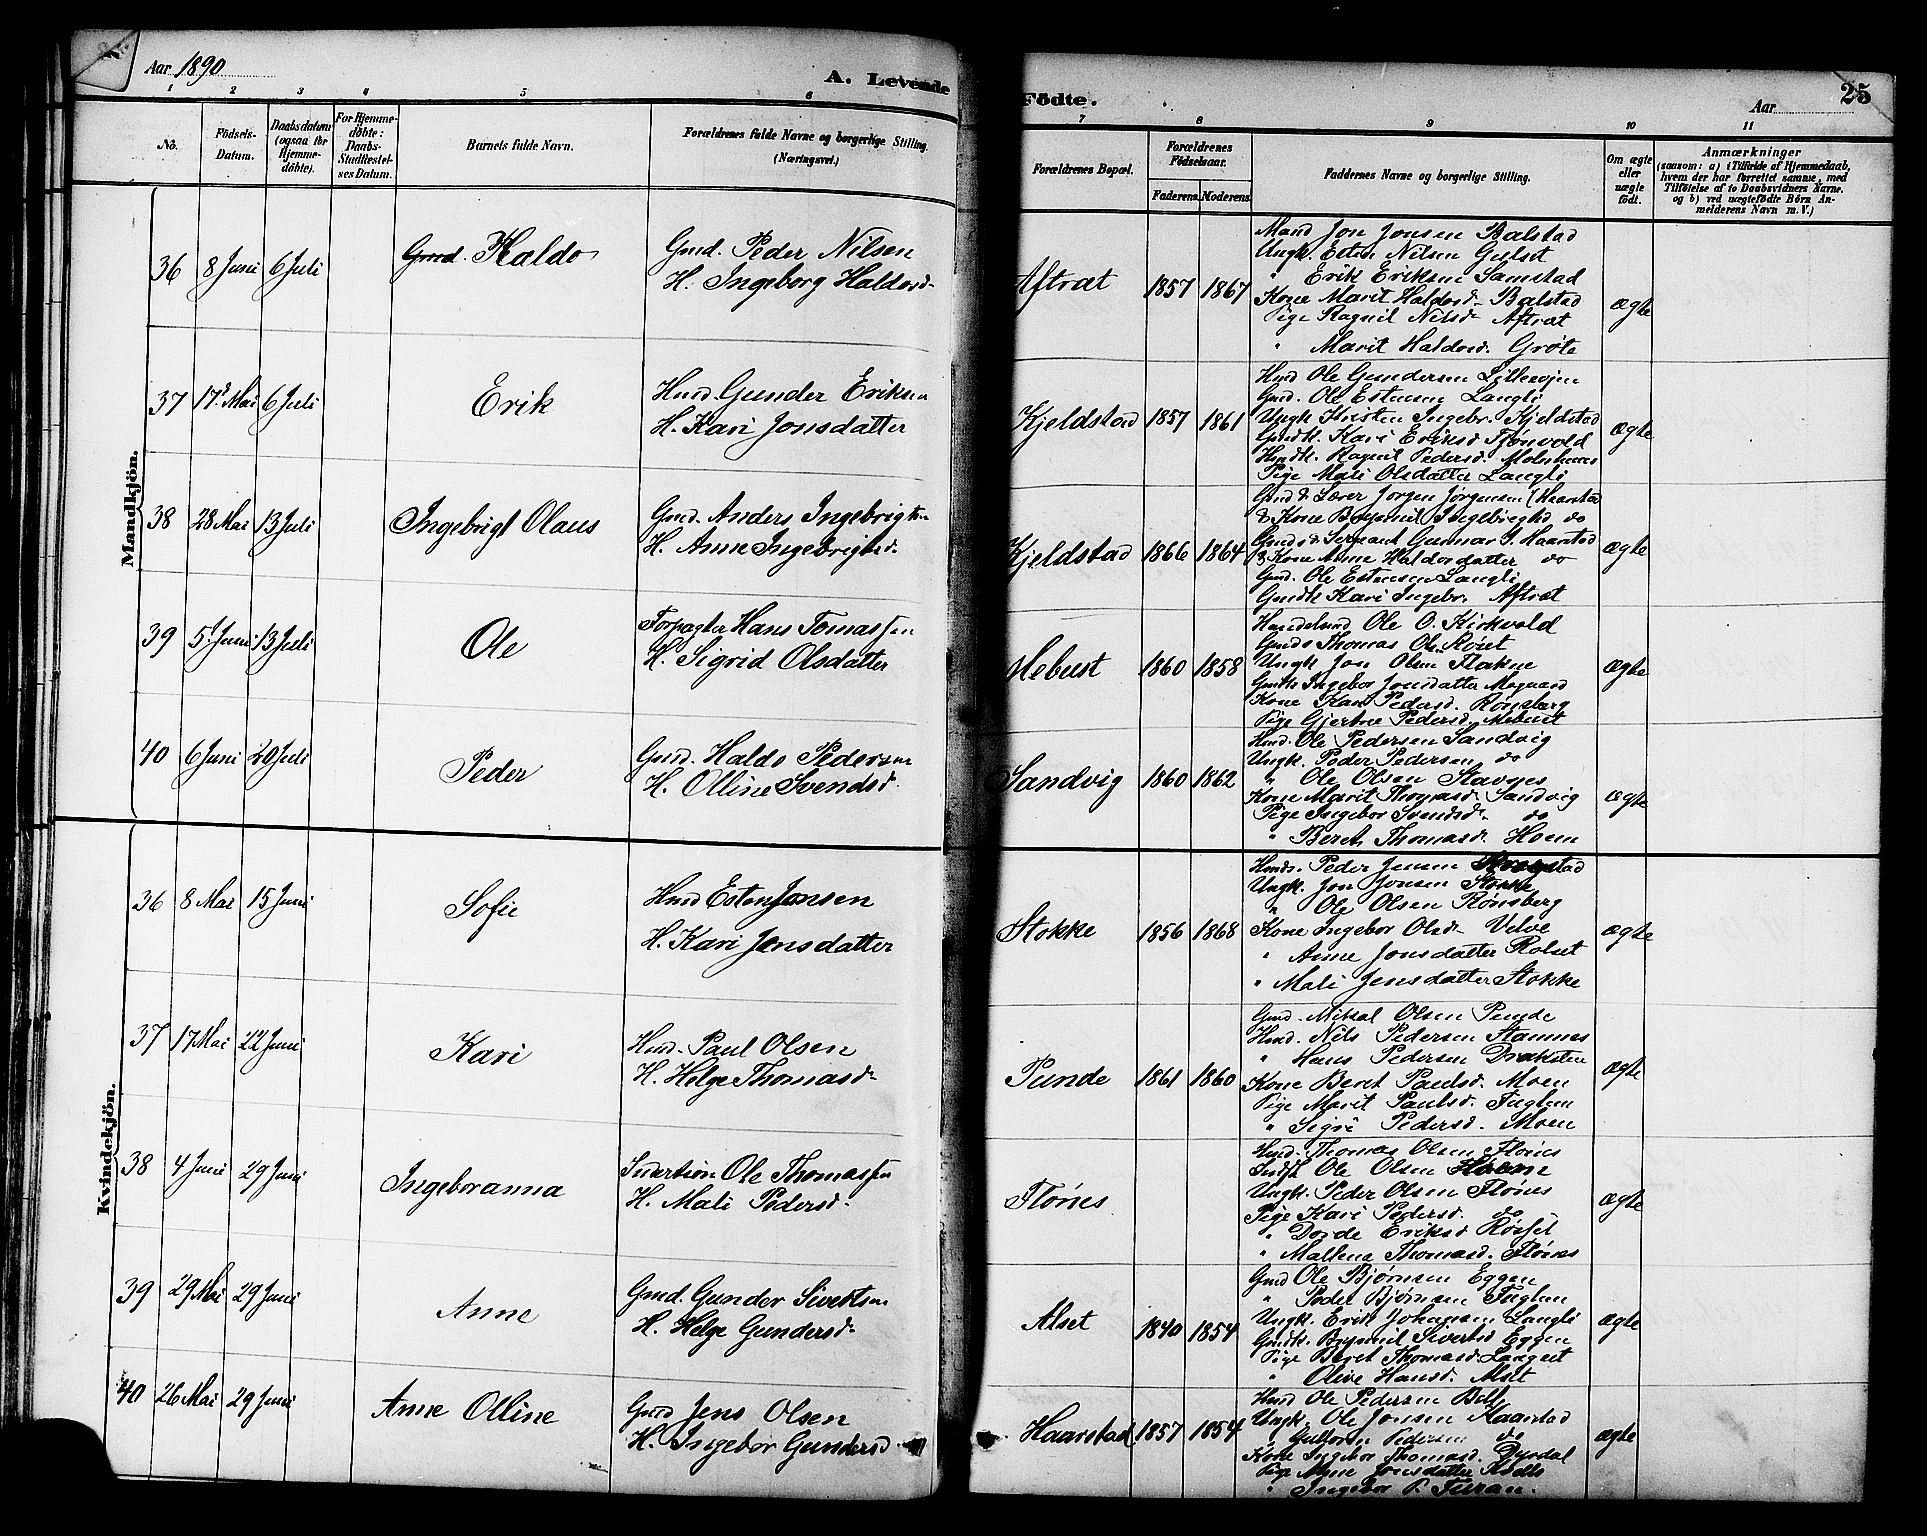 Aar 1890
A. Levende
Födte.
Aar
25
1 2 3 4 5 6
7 8 9 10 11
No.
Födsels-Datum.
Daabsdatum (ogsaa for Hjemme-döbte).
For Hjemme-döbte: Daabs-Stadfæstel-ses Datum.
Barnets fulde Navn.
Forældrenes fulde Navne og borgerlige Stilling. (Næringsvei.)
Forældrenes Bopæl.
Forældrenes Födselsaar.
Faderens. Moderens.
Faddernes Navne og borgerlige Stilling.
Om ægte eller uægte födt.
Anmærkninger
(saasom: a) i Tilfælde af Hjemmedaab,
hvem der har forrettet samme, med
Tilföielse af to Daabsvidners Navne.
og b) ved uægtefödte Börn An-
melderens Navn m. V.)
Mandkjön.
36 8 Juni 6 Juli Gmd. Haldo
Gmd. Peder Nilsen
H. Ingeborg Haldorsd.
Aftræt 1857 1867 ægte
Mand Jon Jonsen Balstad
Ungk. Esten Nilsen Gulset
" Erik Eriksen Samstad
Kone Marit Haldorsd. Balstad
Pige Ragnil Nilsd. Aftræt
" Marit Haldorsd. Grøte
37 17 Mai 6 Juli Erik
Hmd. Gunder Eriksen
H. Kari Jonsdatter
Kjeldstad 1857 1861 ægte
Hmd Ole Gundersen Lillevjen
Gmd. Ole Estensen Langli
Ungk. Kristen Ingebr. Kjeldstad
Gmdk. Kari Eriksd Flønvold
Hmdk. Ragnil Pedersd. Moleshuus
Pige Mali Olsdatter Langli
38 28 Mai 13 Juli Ingebrigt Olaus
Gmd. Anders Ingebrigtsn
H. Anne Ingebrigtsd.
Kjeldstad 1866 1864 ægte
Gmd & Lærer Jørgen Jørgensen Haarstad
& Kone Brynnil Ingebrigtsd do
Gmd & Sersant Gunnar J. Haarstad
& Kone Anne Haldorsdatter do
Gmd. Ole Estensen Langli
Gmdk Kari Ingebr. Aftræt
39 5 Juni 13 Juli Ole
Forpagter Hans Tomassen
H. Sigrid Olsdatter
Mebust 1860 1858 ægte
Handelsmd Ole O. Kirkvold
Gmd Thomas Ols. Røset
Ungk Jon Olsen Flakne
Gmdk Ingebor Jonsdatter Mogaard
Kone Kari Pedersd. Rønsberg
Pige Gjertine Pedersd. Mebust
40 6 Juni 20 Juli Peder
Gmd. Haldo Pedersen
H. Olline Svendsd.
Sandvig 1860 1862 ægte
Hmd. Ole Pedersen Sandvig
Ungk. Peder Pedersen do
" Ole Olsen Stavnes
Kone Marit Thomasd. Sandvig
Pige Ingebor Svendsd. do
" Beret Thomasd. Hoem
Kvindekjön.
36 8 Mai 15 Juni Sofie
Hmd Esten Jonsen
H. Kari Jensdatter
Stokke 1856 1868 ægte
Hmd. Peder Jensen
Ungk. Jon Jonsen Stokke
" Ole Olsen Rønsberg
Kone Ingebor Olsd. Velve
" Anne Jonsdatter Rolset
" Mali Jensdatter Stokke
37 17 Mai 22 Juni Kari
Hmd. Paul Olsen
H. Helge Thomasd.
Punde 1861 1860 ægte
Gmd. Miksal Olsen Punde
Hmd. Nils Pedersen Stamnes
" Hans Pedersen Draksten
Kone Beret Paulsd. Moen
Pige Marit Paulsd. Fuglem
" Sigri Pedersd. Moen
38 4 Juni 29 Juni Ingeboranna
Inderstmn Ole Thomassen
H. Mali Pedersd.
Flønes ægte
Hmd. Thomas Olsen Flønes
Indst Ole Olsen Hoem
Ungk. Peder Olsen Flønes
Pige Kari Pedersd. do
" Dorde Eriksd Røsset
" Mallena Thomasd. Flønes
39 29 Mai 29 Juni Anne
Gmd. Gunder Sivertsen
H. Helge Gundersd.
Alset 1840 1854 ægte
Gmd Ole Bjørnsen Eggen
" Peder Bjørnsen Fuglem
Ungk. Erik Johansen Langli
Gmdk. Brynnil Sivertsd Eggen
Pige Beret Thomasd. Langset
" Olive Hansd. Alset
40 26 Mai 29 Juni Anne Olline
Gmd Jens Olsen
H. Ingebor Gundersd.
Haarstad 1857 1854 ægte
Hmd Ole Pedersen Bell
Ungk. Ole Jonsen Haarstad
" Guttorm Pedersen do
Kone Ingebor Thomasd. Dyrdal
Pige Anne Jonsdatter
" Ingebor P. Furan.